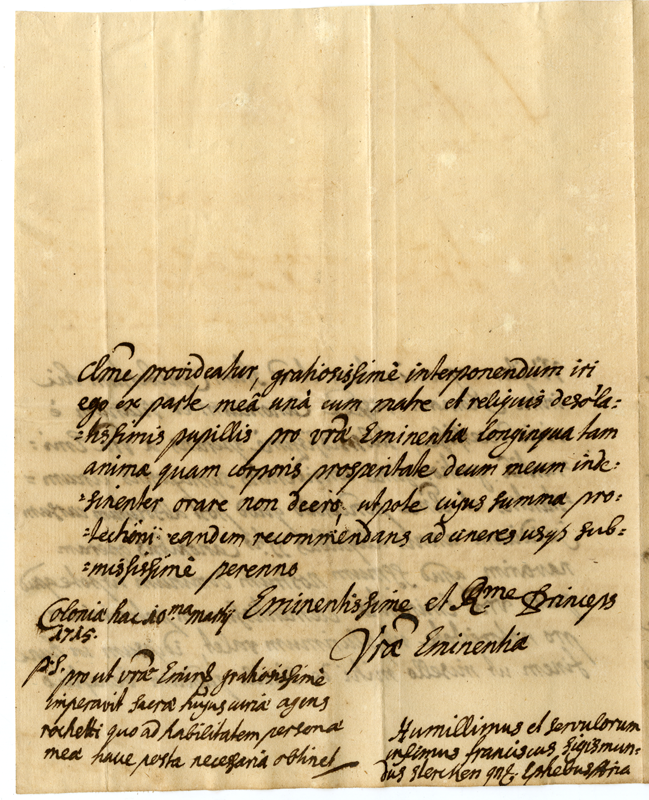 Clme provideatur, gratiosissimè interponendum iri
ego ex parte meâ unà cum matre et reliquis desola=
=tissimis pupillis pro vrã Eminentia longinqua tam
anima quam corporis prosperitate deum meum inde:
=sinenter orare non deero, utpote cujus summa pro=
=tectioni eandem recommendans ad cineres usqs sub=
=missimè perenno
Colonia hac 10ma
1715.
Eminentissime et Rme Princeps
Vrã Eminentia
ps. prout vrã gratiosissimè
imperavit sacræ hujus curiæ agens
rochetti quo ad habilitatem personæ
meæ necessaria obtinet
Humillimus et servulorum
infimus franciscus sigismun=
dus